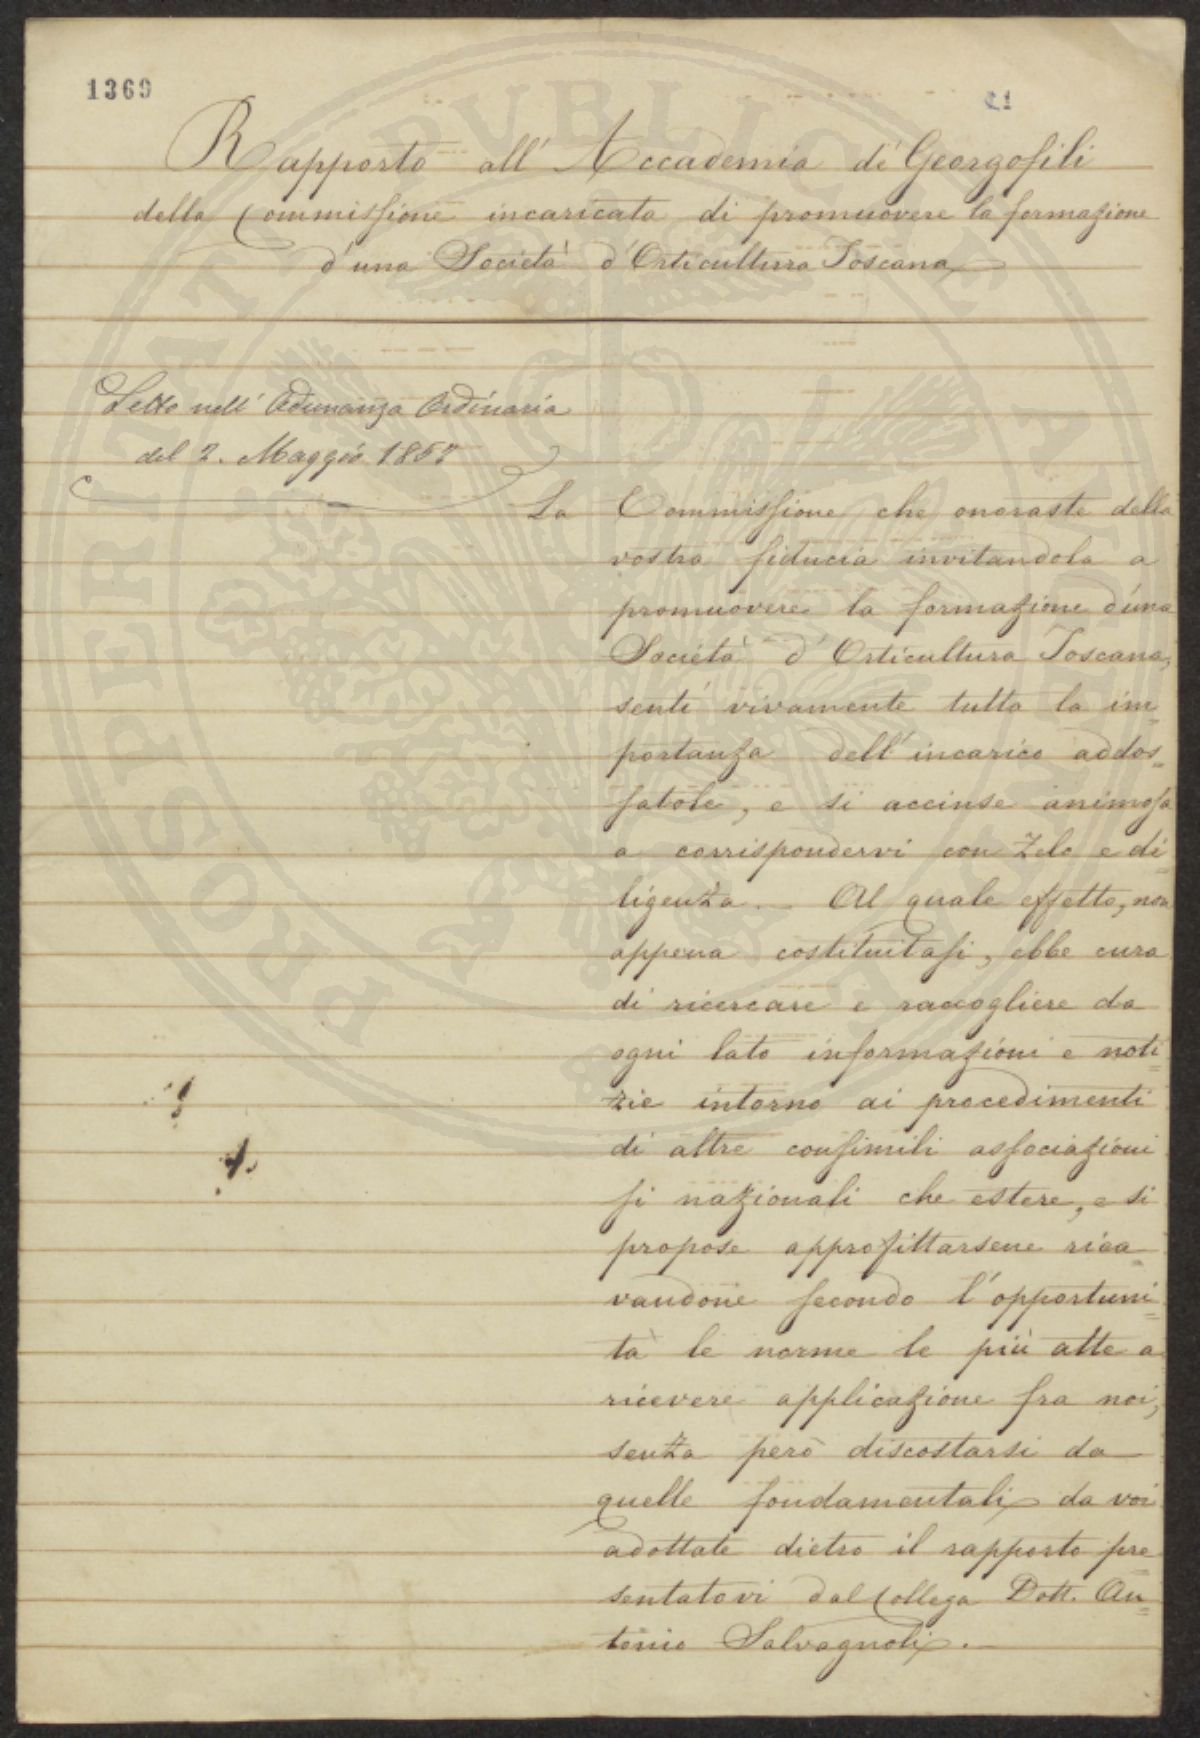 1369
21
Rapporto all' Accademia de' Georgofili
della Commissione incaricata di promuovere la formazione
d'una Società d'Orticultura Toscana
Letto nell' Adunanza Ordinaria
del 2. Maggio 1852
La Commissione che onoraste della
vostra fiducia invitandola a
promuovere la formazione d'una
Società d'Orticultura Toscana,
sentì vivamente tutta la im=
portanza dell'incarico addos=
satole, e si accinse animosa
a corrispondervi con zelo e di=
ligenza. — Al quale effetto, non
appena costituitasi, ebbe cura
di ricercare e raccogliere da
ogni lato informazioni e noti=
zie intorno ai procedimenti
di altre consimili associazioni
si nazionali che estere, e si
propose approfittarsene rica=
vandone secondo l'opportuni=
tà le norme le più atte a
ricevere applicazione fra noi,
senza però discostarsi da
quelle fondamentali da voi
adottate dietro il rapporto pre=
sentatovi dal Collega Dott. An=
tonio Salvagnoli. —
PROSPERITATI PUBLICAE AUGENDAE